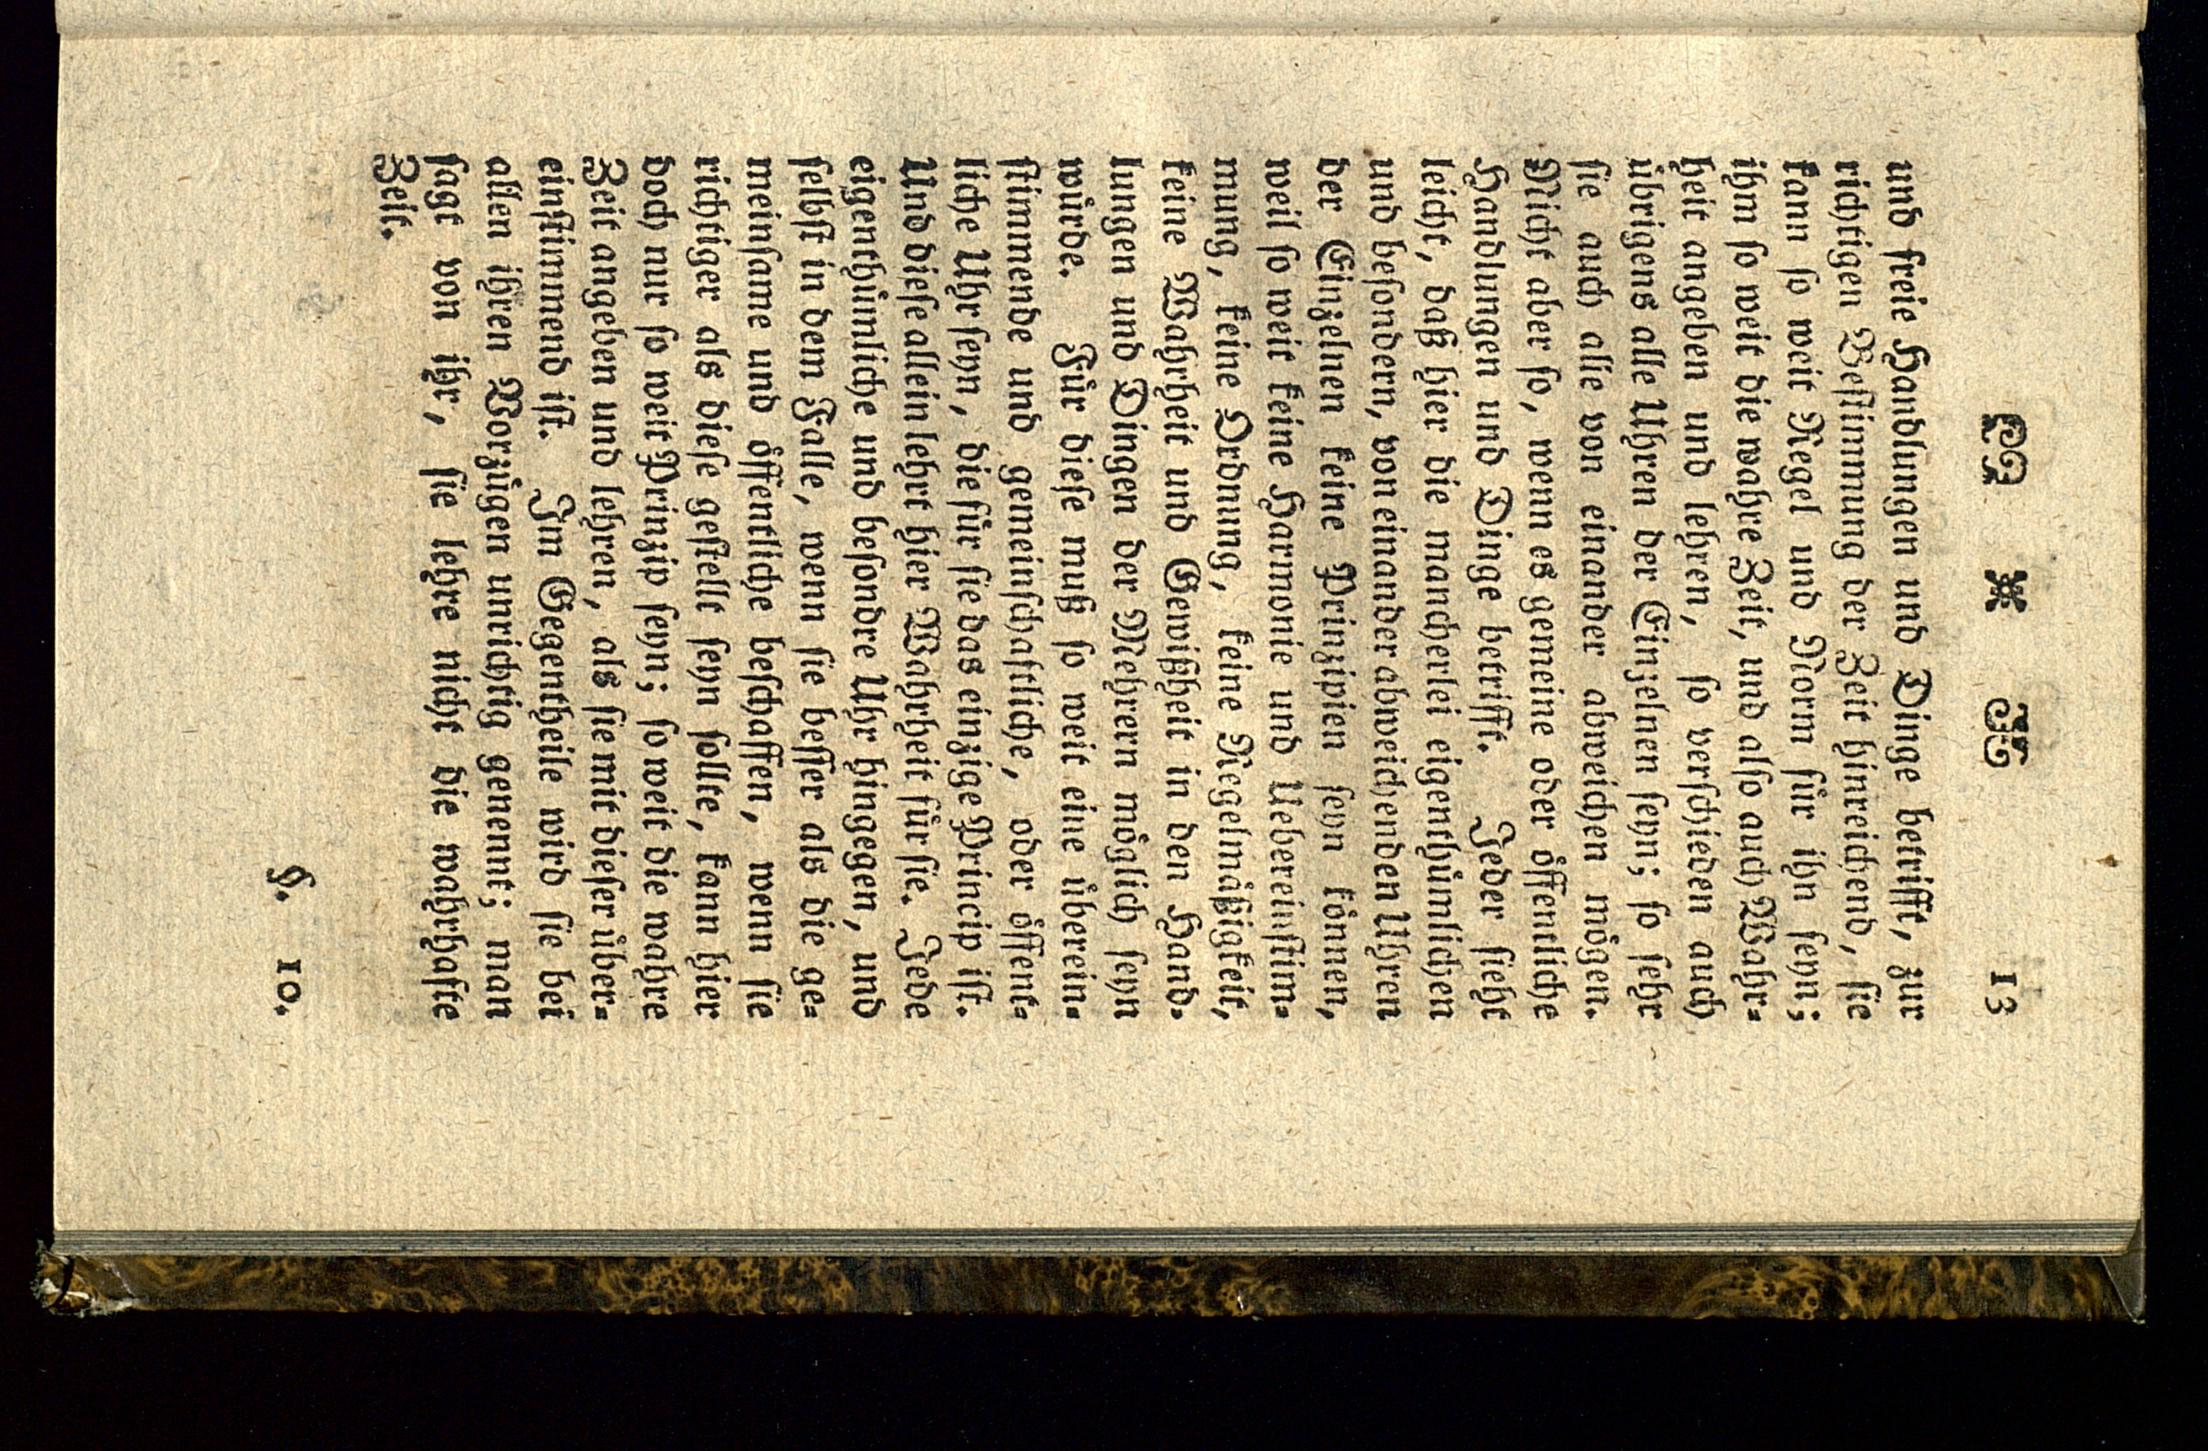 13
und freie Handlungen und Dinge betrifft, zur
richtigen Bestimmung der Zeit hinreichend, sie
kann so weit Regel und Norm für ihn seyn;
ihm so weit die wahre Zeit, und also auch Wahr-
heit angeben und lehren, so verschieden auch
übrigens alle Uhren der Einzelnen seyn; so sehr
sie auch alle von einander abweichen mögen.
Nicht aber so, wenn es gemeine oder öffentliche
Handlungen und Dinge betrifft. Jeder sieht
leicht, daß hier die mancherlei eigenthümlichen
und besondern, von einander abweichenden Uhren
der Einzelnen keine Prinzipien seyn können,
weil so weit keine Harmonie und Uebereinstim-
mung, keine Ordnung, keine Regelmäßigkeit,
keine Wahrheit und Gewißheit in den Hand-
lungen und Dingen der Mehrern möglich seyn
würde. Für diese muß so weit eine überein-
stimmende und gemeinschaftliche, oder öffent-
liche Uhr seyn, die für sie das einzige Princip ist.
Und diese allein lehrt hier Wahrheit für sie. Jede
eigenthümliche und besondre Uhr hingegen, und
selbst in dem Falle, wenn sie besser als die ge-
meinsame und öffentliche beschaffen, wenn sie
richtiger als diese gestellt seyn sollte, kann hier
doch nur so weit Prinzip seyn; so weit die wahre
Zeit angeben und lehren, als sie mit dieser über-
einstimmend ist. Im Gegentheile wird sie bei
allen ihren Vorzügen unrichtig genennt; man
sagt von ihr, sie lehre nicht die wahrhafte
Zeit.
§. 10.